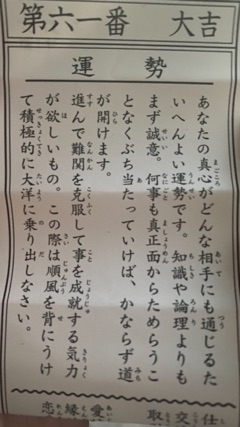 第六一番 大吉
運勢
あなたの真心がどんな相手にも通じるた
いへんよい運勢です。知識や論理よりも
まず誠意。何事も真正面からためらうこ
となくぶち当たっていけば、かならず道
が開けます。
進んで難関を克服して事を成就する気力
が欲しいもの。この際は順風を背にうけ
て積極的に大洋に乗り出しなさい。
仕
交
取
愛
縁
恋